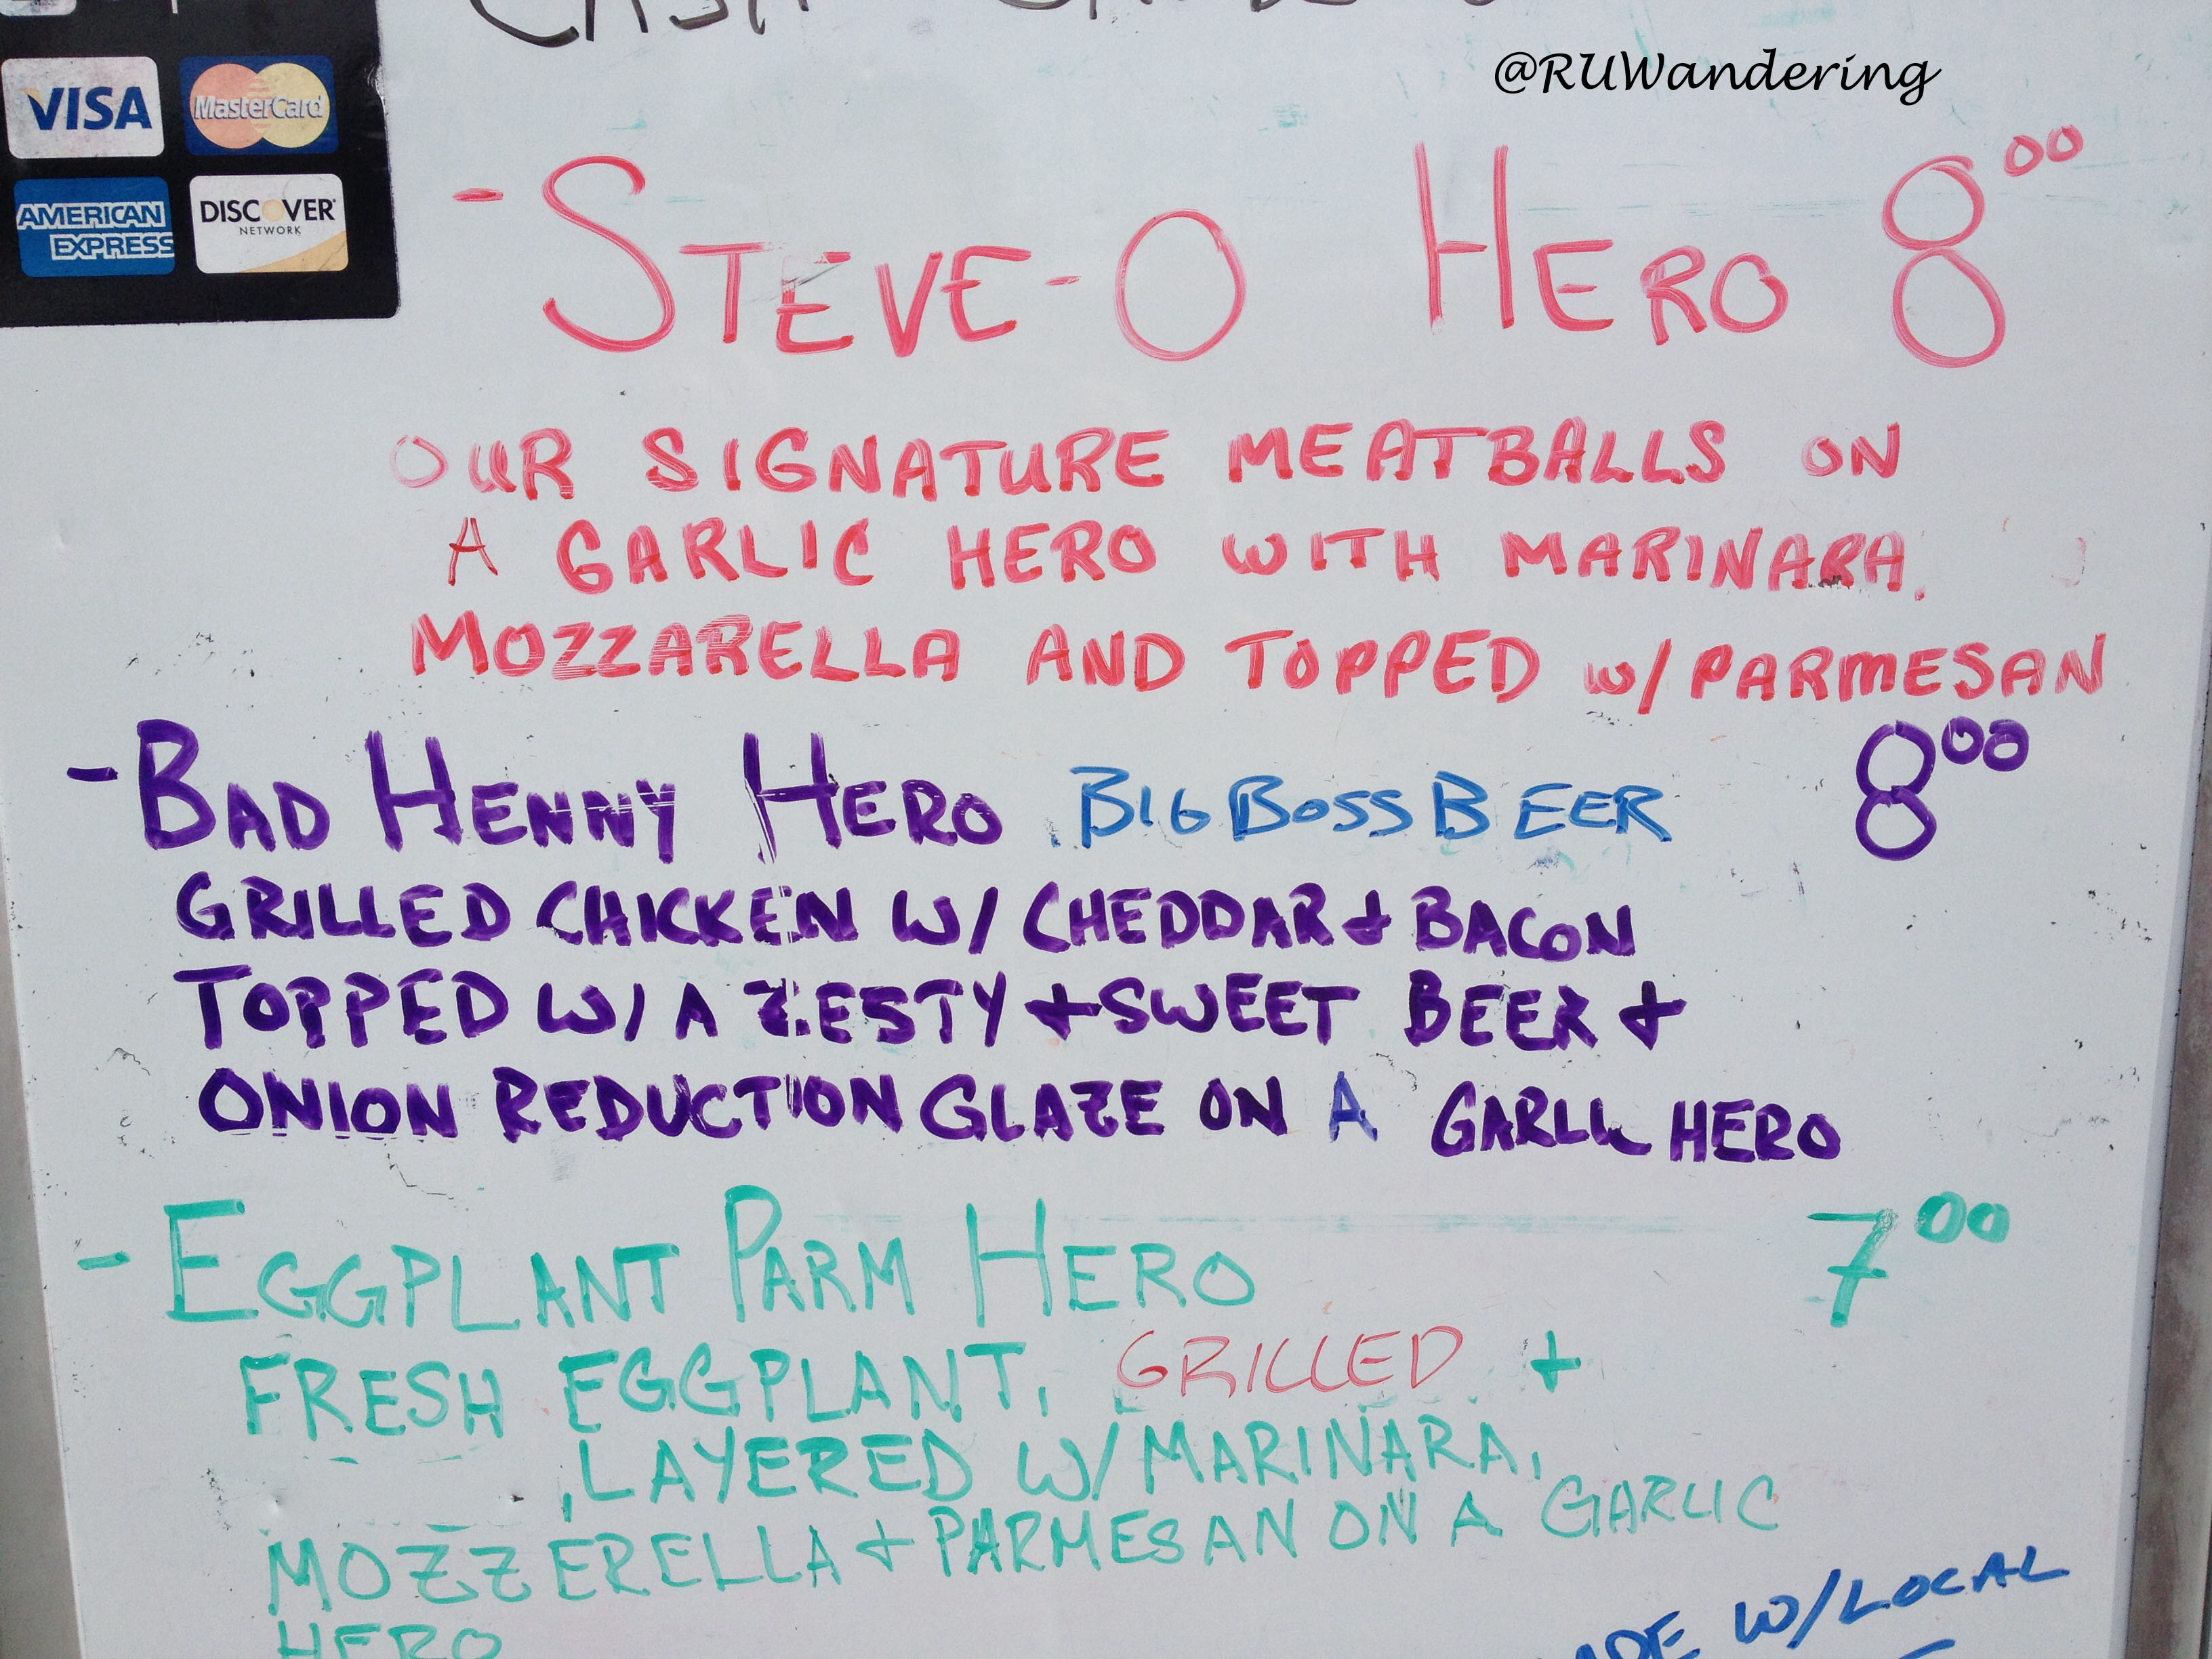 VISA MasterCard
AMERICAN EXPRESS DISCOVER NETWORK
@RUWandering
- STEVE-O HERO 8.00
OUR SIGNATURE MEATBALLS ON
A GARLIC HERO WITH MARINARA,
MOZZARELLA AND TOPPED W/ PARMESAN
- BAD HENNY HERO BIG BOSS BEER 8.00
GRILLED CHICKEN W/ CHEDDAR + BACON
TOPPED W/ A ZESTY + SWEET BEER +
ONION REDUCTION GLAZE ON A GARLIC HERO
- EGGPLANT PARM HERO 7.00
FRESH EGGPLANT, GRILLED +
, LAYERED W/ MARINARA,
MOZZERELLA + PARMESAN ON A GARLIC
HERO
W/ LOCAL